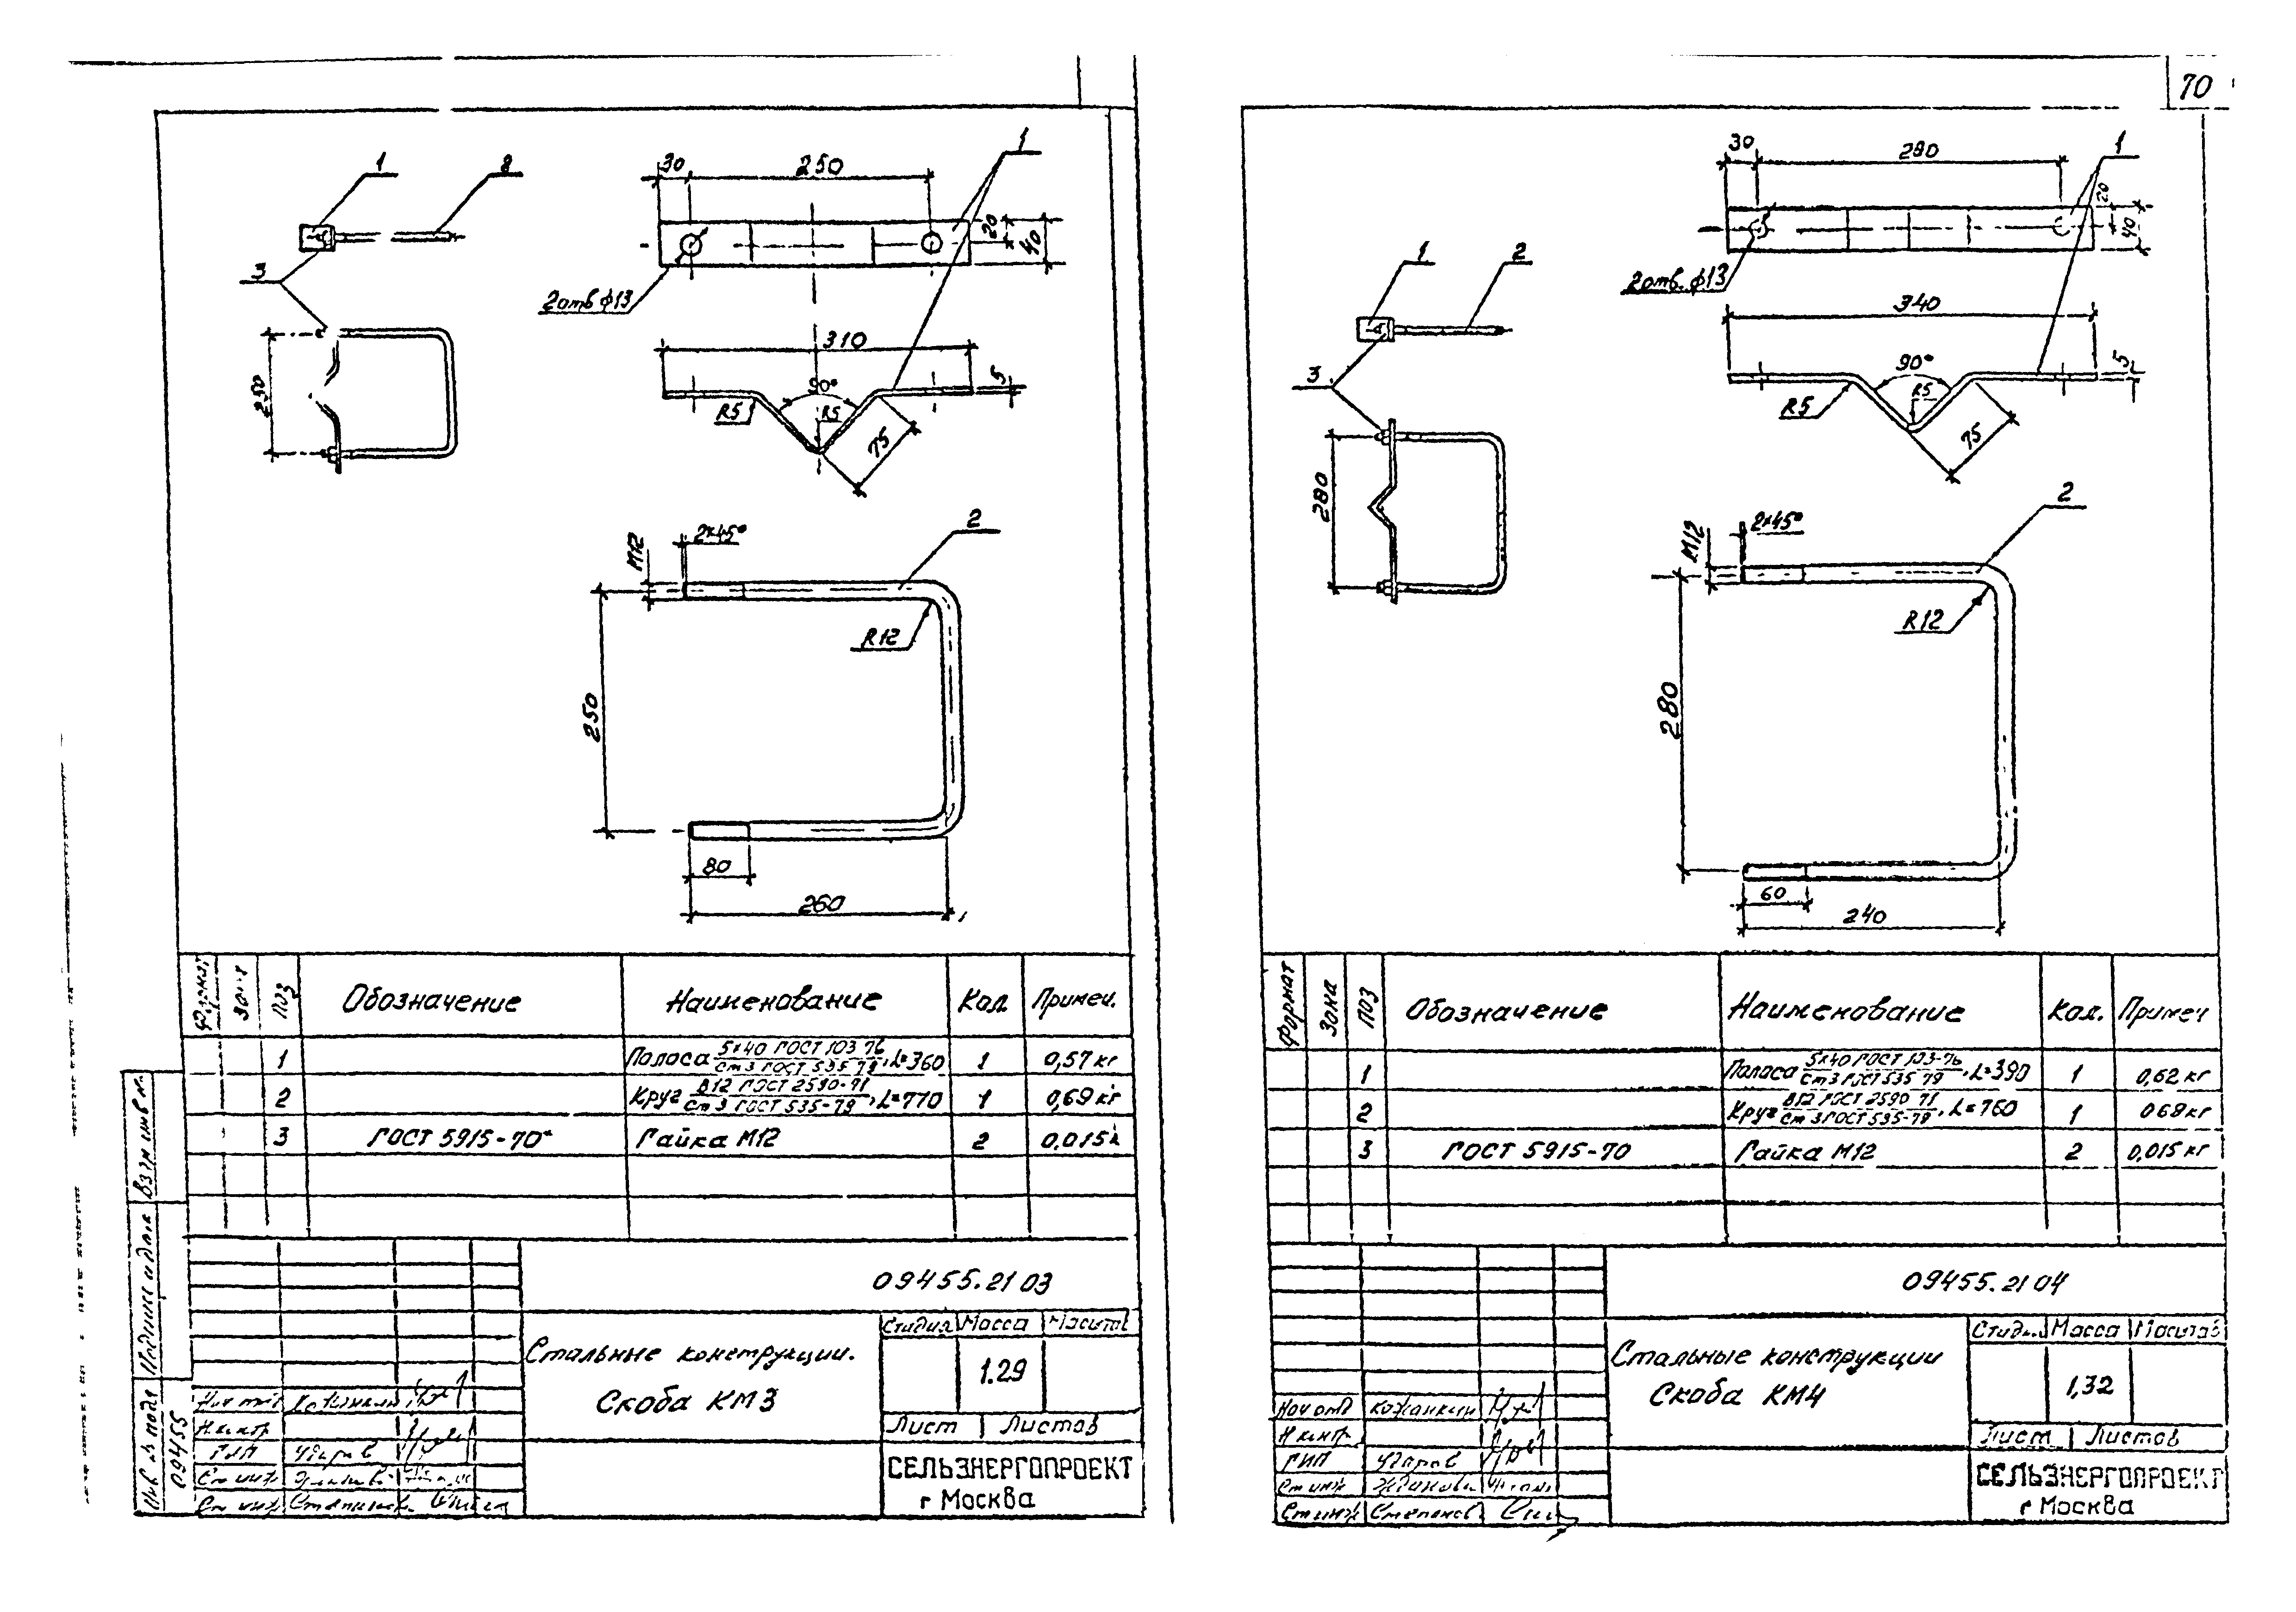 70
1
8
3
250
30
250
1
20
40
2отв ф13
310
90°
5
R5
R5
75
2
M12
2×45°
R12
250
80
260
Поз
Обозначение
Наименование
Кол.
Примеч.
1
Полоса 5×40 ГОСТ 103 76
Ст3 ГОСТ 535 79, L=360
1
0,57 кг
2
Круг В12 ГОСТ 2590-71
Ст3 ГОСТ 535-79, L=770
1
0,69 кг
3
ГОСТ 5915-70*
Гайка М12
2
0,015
09455.21 03
Стальные конструкции.
Скоба КМ3
Стадия
Масса
1.29
Лист
Листов
СЕЛЬЭНЕРГОПРОЕКТ
г Москва
Взам инв №
Подпись и дата
Инв № подл
09455
1
2
3
280
30
280
1
20
40
2отв. ф13
340
90°
5
R5
R5
75
2
M12
2×45°
R12
280
60
240
Формат
Зона
Поз
Обозначение
Наименование
Кол.
Примеч
1
Полоса 5×40 ГОСТ 103-76
Ст3 ГОСТ 535 79, L=390
1
0,62 кг
2
Круг В12 ГОСТ 2590 71
Ст3 ГОСТ 535-79, L=760
1
068 кг
3
ГОСТ 5915-70
Гайка М12
2
0,015 кг
09455.21 04
Стальные конструкции
Скоба КМ4
Масса
Масштаб
1,32
Лист
Листов
Нач отд
Н контр
ГИП
Ст инж
Ст инж
СЕЛЬЭНЕРГОПРОЕКТ
г Москва